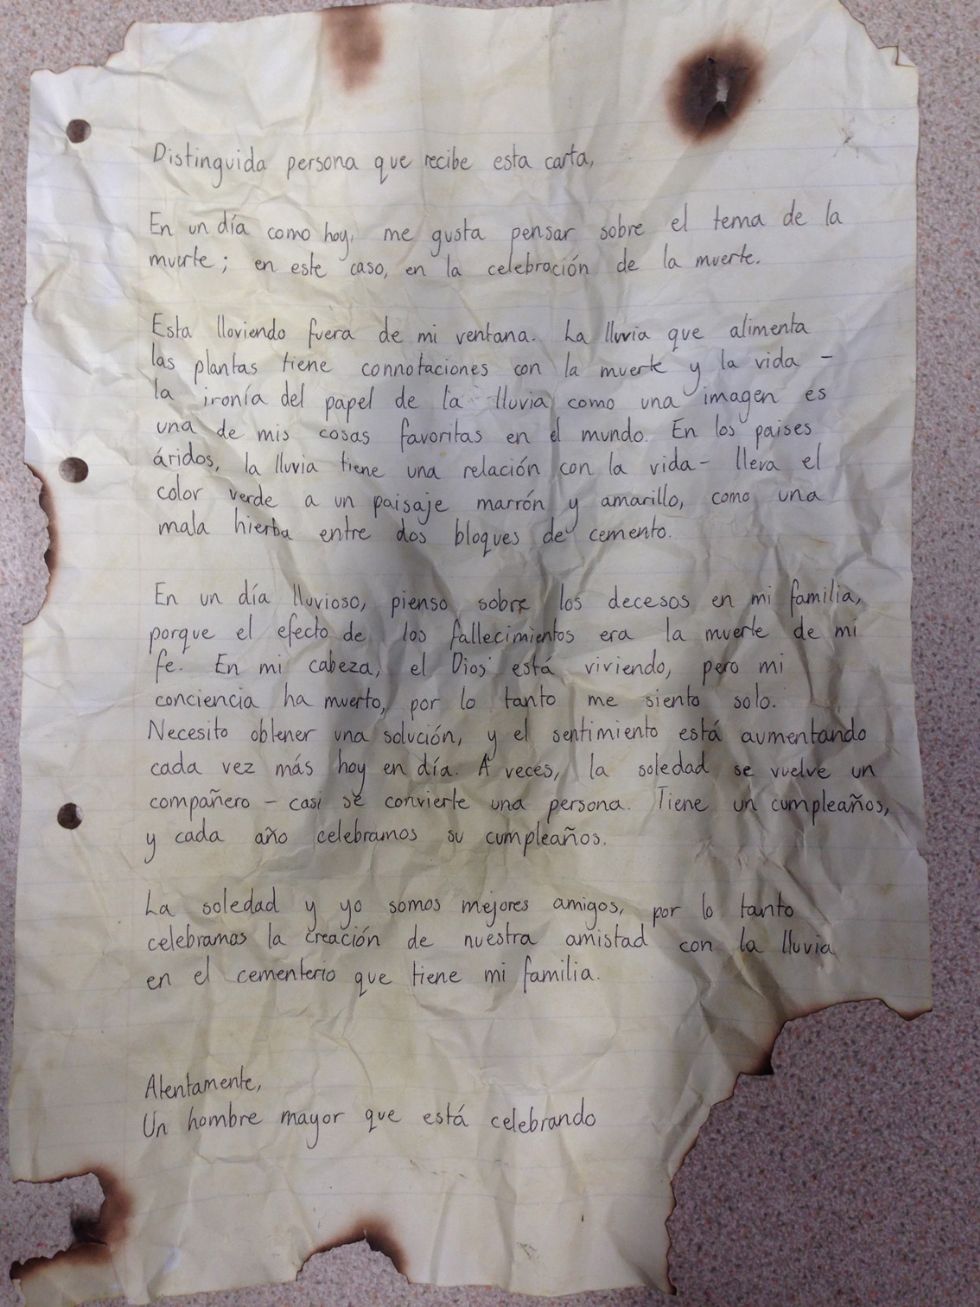 Distinguida persona que recibe esta carta,
En un día como hoy, me gusta pensar sobre el tema de la
muerte; en este caso, en la celebración de la muerte.
Esta lloviendo fuera de mi ventana. La lluvia que alimenta
las plantas tiene connotaciones con la muerte y la vida -
la ironía del papel de la lluvia como una imagen es
una de mis cosas favoritas en el mundo. En los paises
áridos, la lluvia tiene una relación con la vida- lleva el
color verde a un paisaje marrón y amarillo, como una
mala hierba entre dos bloques de cemento.
En un día lluvioso, pienso sobre los decesos en mi familia,
porque el efecto de los fallecimientos era la muerte de mi
fe. En mi cabeza, el Dios está viviendo, pero mi
conciencia ha muerto, por lo tanto me siento solo.
Necesito obtener una solución, y el sentimiento está aumentando
cada vez más hoy en día. A veces, la soledad se vuelve un
compañero - casi se convierte una persona. Tiene un cumpleaños,
y cada año celebramos su cumpleaños.
La soledad y yo somos mejores amigos, por lo tanto
celebramos la creación de nuestra amistad con la lluvia
en el cementerio que tiene mi familia.
Atentamente,
Un hombre mayor que está celebrando